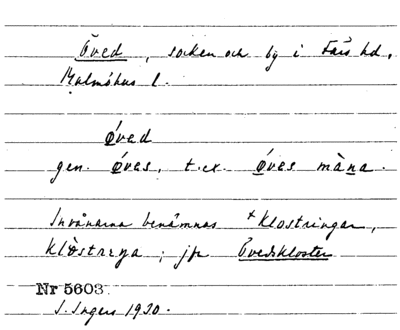 Öved, socken och by i Färs hd,
Malmöhus l.
ǿved
gen. ǿves, t.ex. ǿves màna.
Invånarna benämnas +Klostringar,
klòstrega; jfr Övedskloster
Nr 5603
I. Ingers 1930.